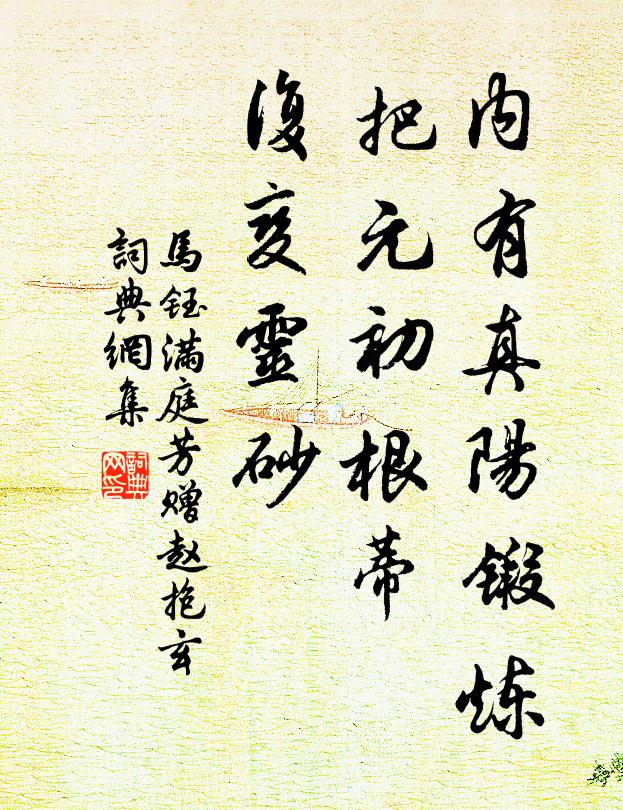 内有真陽鍛炼
把元初根蒂
復变靈砂
馬鈺满庭芳赠赵抱玄
詞典網集
詞典
网印